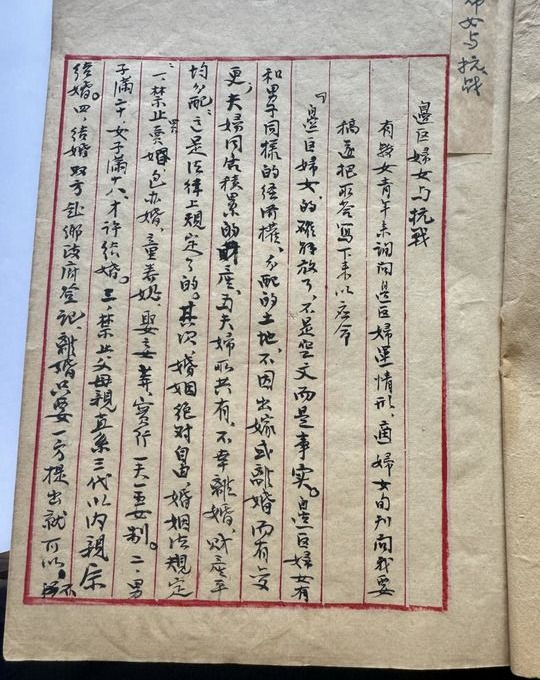 婦女与抗战
邊区婦女与抗战
有数女青年来詢问邊区婦運情形、適婦女旬刊向我要
稿遂把所答写下来以应命
『邊区婦女的確解放了、不是空文而是事实。邊区婦女有
和男子同樣的经济權、分配的土地、不因出嫁或離婚而有变
更、夫婦同居積累的財產、为夫婦所共有、不幸離婚、財產平
均分配、这是法律上規定了的。其次婚姻绝对自由婚姻法規定
一、禁止卖买婚包办婚、童养媳、娶妾、实行一夫一妻制。二、男
子滿二十、女子滿十八、才许结婚。三、禁止父母親直系三代以内親系
结婚。四、结婚双方赴鄉政府登記、離婚只要一方提出就可以、不